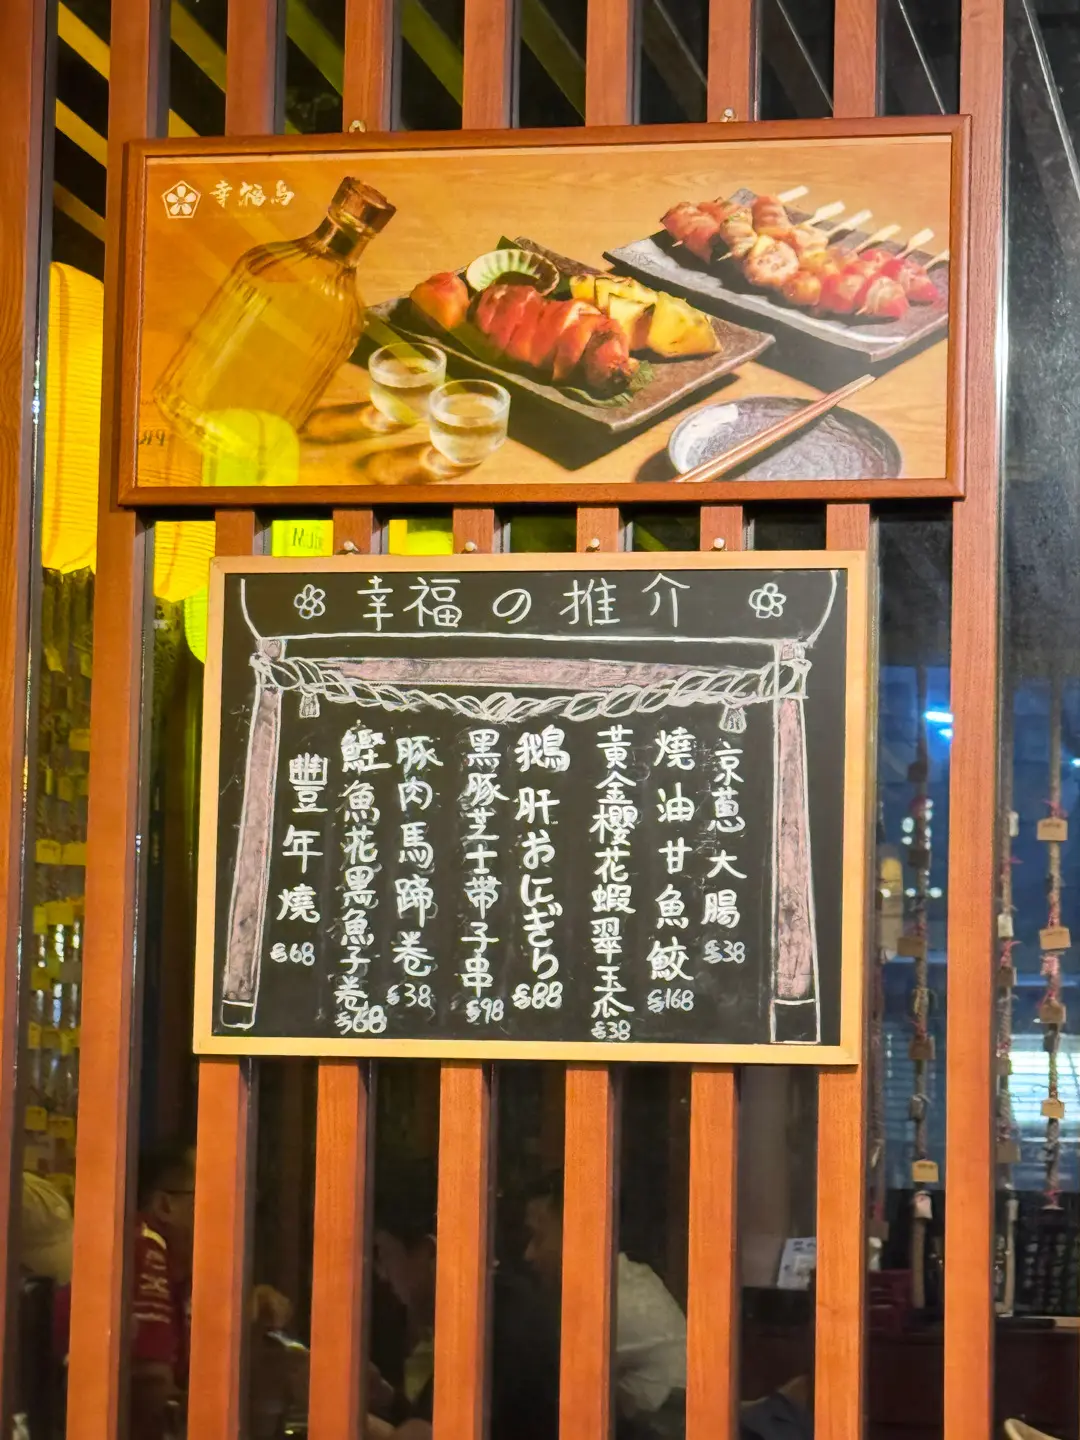 幸福鳥
幸福の推介
京蔥大腸
$38
燒油甘魚鮫
$168
黃金櫻花蝦翠玉瓜
$38
鵝肝おにぎり
$88
黑豚芝士帶子串
$98
豚肉馬蹄卷
$38
鰹魚花黑魚子卷
$68
豐年燒
$68